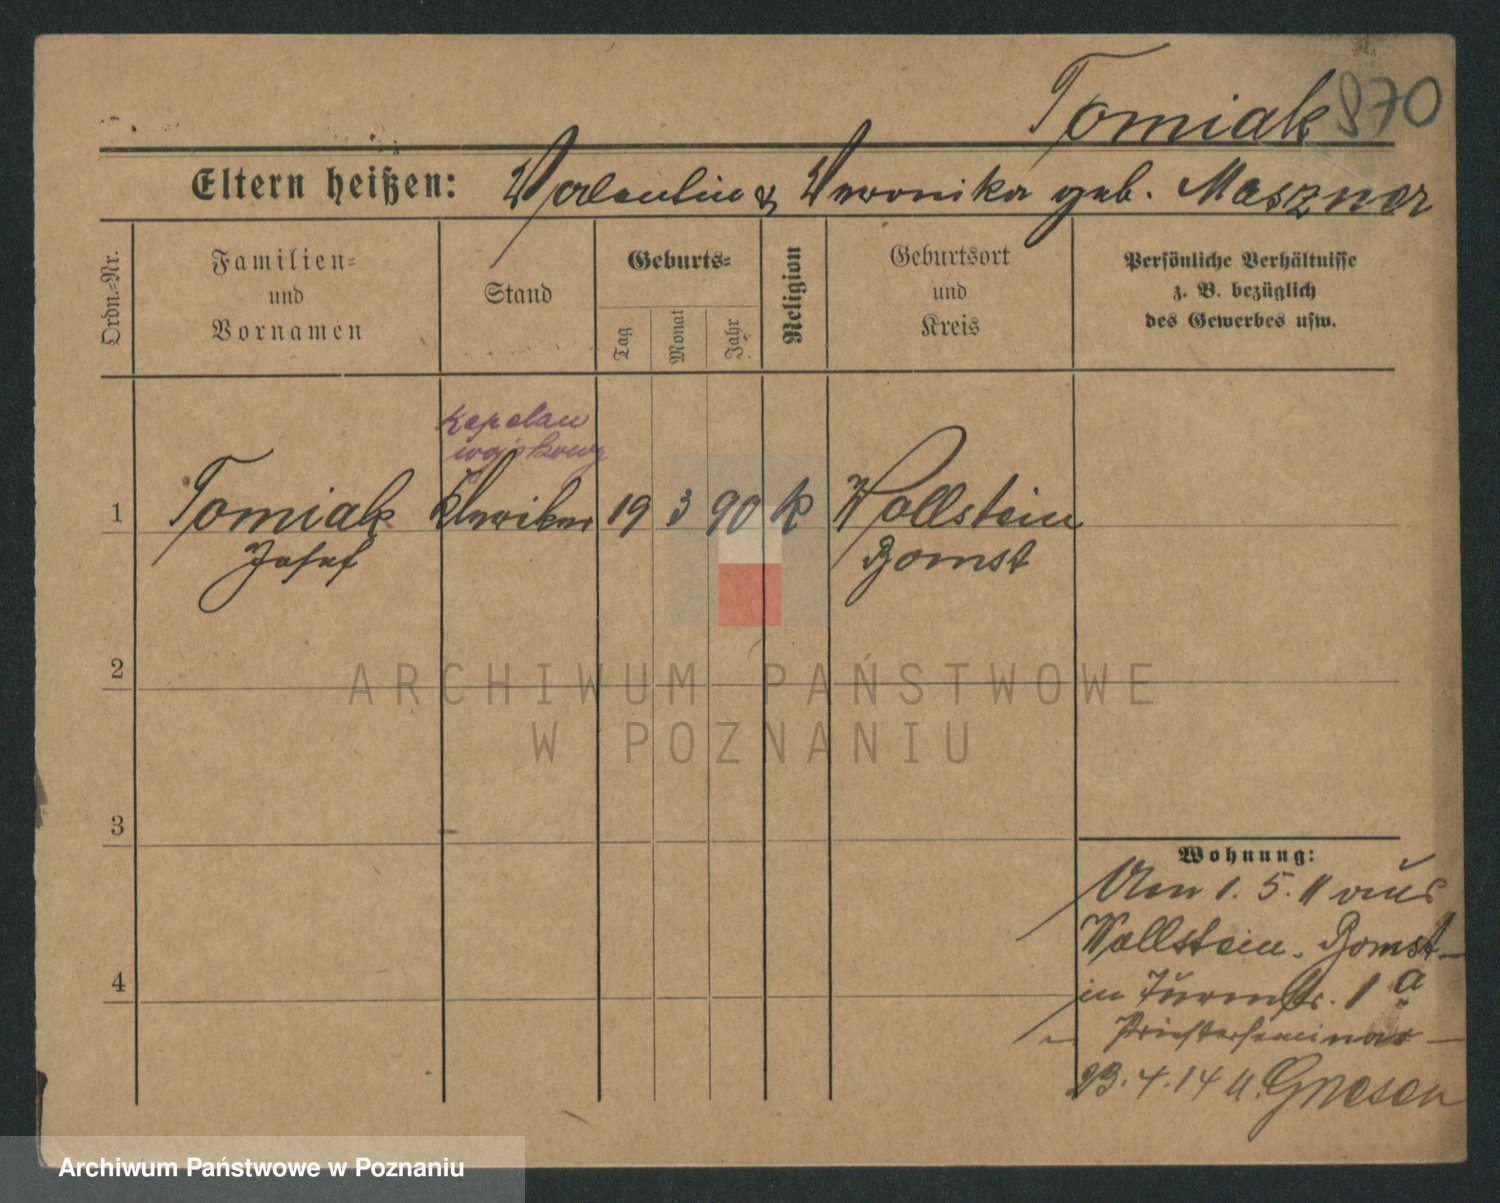 Tomiak 870
Eltern heißen: Valentin & Veronika geb. Maszner
Ordn.=Nr.
Familien=
und
Vornamen
Stand
Geburts=
Tag
Monat
Jahr
Religion
Geburtsort
und
Kreis
Persönliche Verhältnisse
z. B. bezüglich
des Gewerbes usw.
kapelan
wojskowy
1 Tomiak Kleriker 19 3 90 K Wollstein
Josef Bomst
2
3
4
Wohnung:
Am 1. 5. 11 aus
Wollstein. Bomst
in Turmstr. 1 a
Priesterseminar
23. 4. 14 n. Gnesen
ARCHIWUM PAŃSTWOWE
W POZNANIU
Archiwum Państwowe w Poznaniu